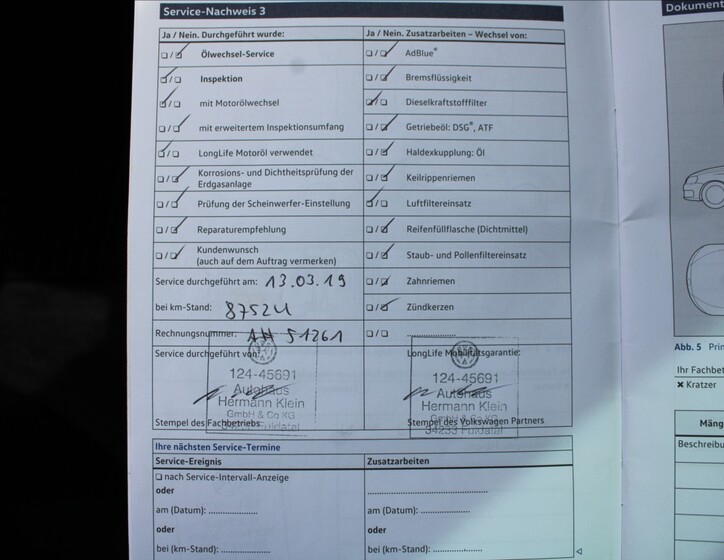 Service-Nachweis 3
Ja / Nein. Durchgeführt wurde:
Ölwechsel-Service
Inspektion
mit Motorölwechsel
mit erweitertem Inspektionsumfang
LongLife Motoröl verwendet
Korrosions- und Dichtheitsprüfung der
Erdgasanlage
Prüfung der Scheinwerfer-Einstellung
Reparaturempfehlung
Kundenwunsch
(auch auf dem Auftrag vermerken)
Service durchgeführt am: 13.03.19
bei km-Stand:
Rechnungsnummer: AH 51261
Service durchgeführt von:
124-45691
Autohaus
Hermann Klein
GmbH & Co KG
34233 Fuldatal
Stempel des Fachbetriebs:
Ja / Nein. Zusatzarbeiten – Wechsel von:
AdBlue®
Bremsflüssigkeit
Dieselkraftstofffilter
Getriebeöl: DSG®, ATF
Haldexkupplung: Öl
Keilrippenriemen
Luftfiltereinsatz
Reifenfüllflasche (Dichtmittel)
Staub- und Pollenfiltereinsatz
Zahnriemen
Zündkerzen
LongLife Mobilitätsgarantie:
124-45691
Autohaus
Hermann Klein
GmbH & Co KG
34233 Fuldatal
Stempel des Volkswagen Partners
Ihre nächsten Service-Termine
Service-Ereignis
nach Service-Intervall-Anzeige
oder
am (Datum):
oder
bei (km-Stand):
Zusatzarbeiten
oder
am (Datum):
oder
bei (km-Stand):
Dokument
Abb. 5 Prin
Ihr Fachbet
✖ Kratzer
Mäng
Beschreibu